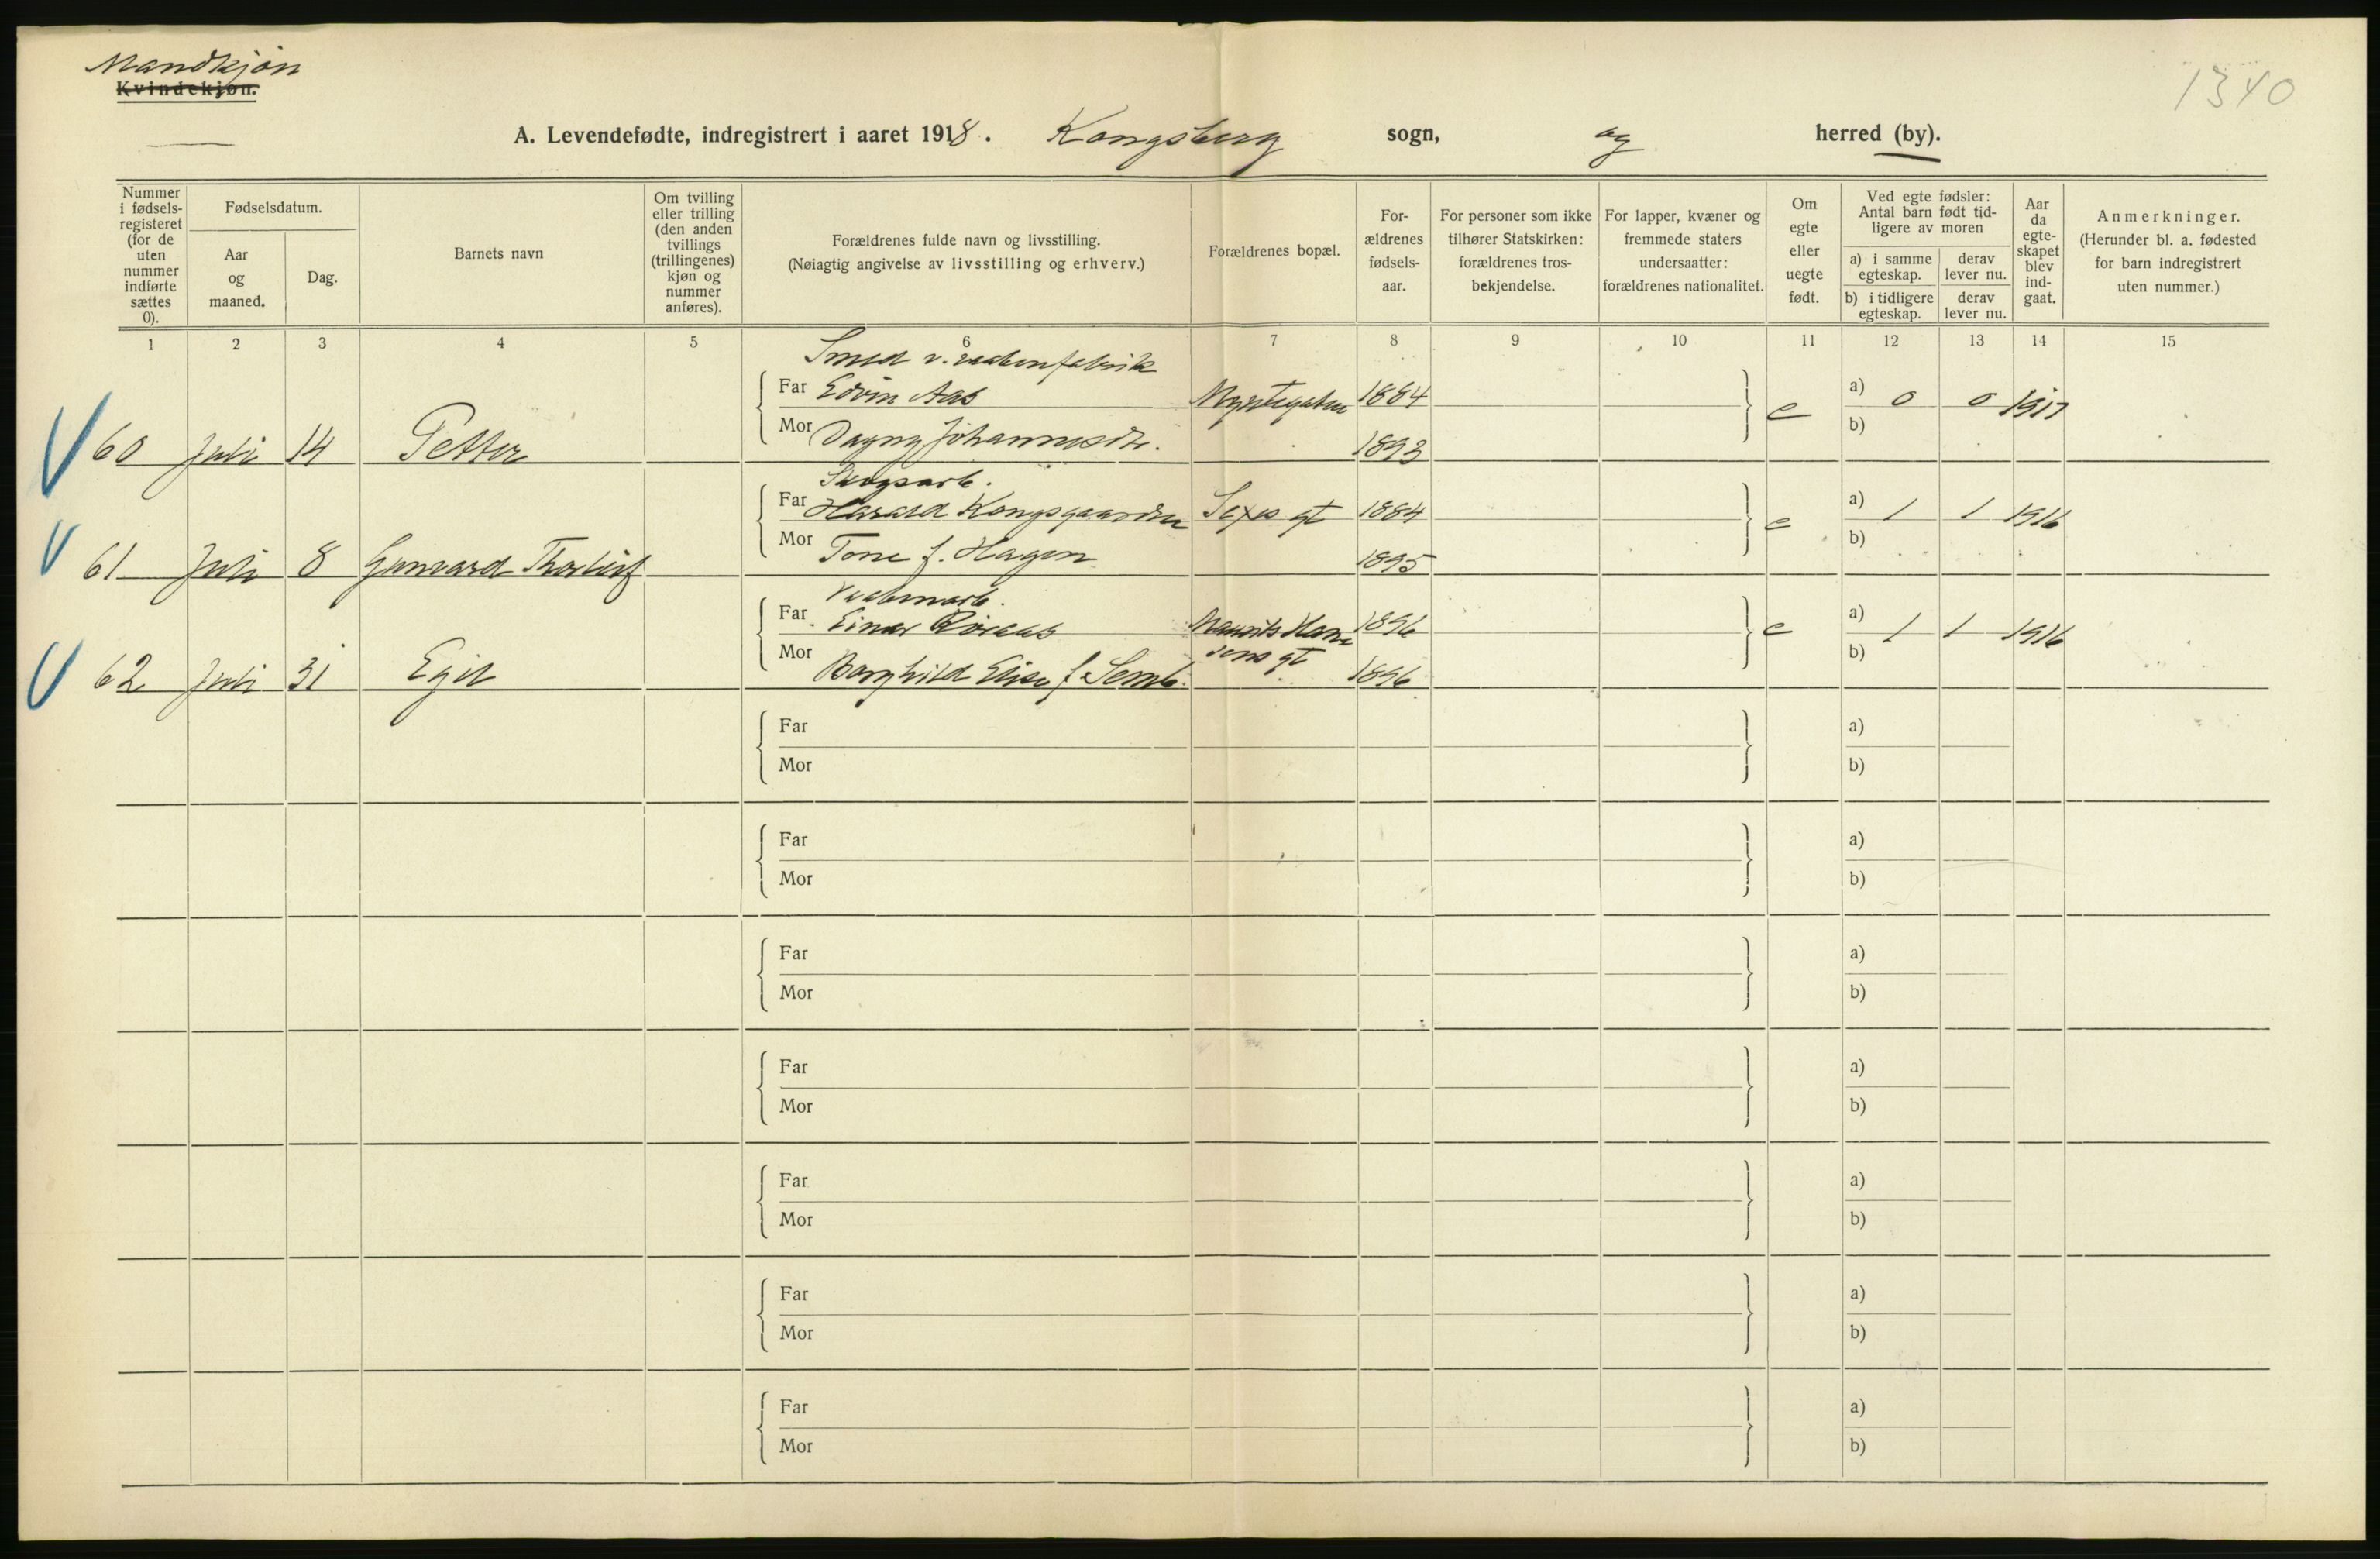 Mandkjøn
Kvindekjøn.
1340
A. Levendefødte, indregistrert i aaret 1918. Kongsberg sogn, og herred (by).
Nummer i fødselsregisteret (for de uten nummer indførte sættes 0).
Fødselsdatum.
Aar og maaned.
Dag.
Barnets navn
Om tvilling eller trilling (den anden tvillings (trillingenes) kjøn og nummer anføres).
Forældrenes fulde navn og livsstilling.
(Nøiagtig angivelse av livsstilling og erhverv.)
Forældrenes bopæl.
For-ældrenes fødsels-aar.
For personer som ikke tilhører Statskirken: forældrenes tros-bekjendelse.
For lapper, kvæner og fremmede staters undersaatter: forældrenes nationalitet.
Om egte eller uegte født.
Ved egte fødsler: Antal barn født tid-ligere av moren
a) i samme egteskap.
derav lever nu.
b) i tidligere egteskap.
derav lever nu.
Aar da egte-skapet blev ind-gaat.
Anmerkninger.
(Herunder bl. a. fødested for barn indregistrert uten nummer.)
1 2 3 4 5 6 7 8 9 10 11 12 13 14 15
Smed v. vaabenfabrik
Far Edvin Aas Myntgaten 1884 e a) 0 0 1917
60 Juli 14 Petter Mor Dagny Johannesdtr. 1893 b)
Skogsarb.
Far Harald Kongsgaarden gt 1884 e a) 1 1 1916
61 Juli 8 Gunvard Thorleif Mor Tone f. Hagen 1895 b)
Vaabenarb.
Far Einar Mauritz Han- 1896 e a) 1 1 1916
sens gt
62 Juli 31 Egil Mor Borghild Elise f. Semb. 1896 b)
Far a)
Mor b)
Far a)
Mor b)
Far a)
Mor b)
Far a)
Mor b)
Far a)
Mor b)
Far a)
Mor b)
Far a)
Mor b)